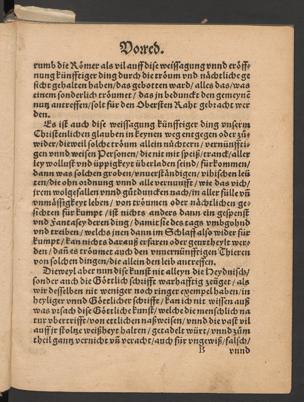 Vorred.
rumb die Römer als vil auff dise weissagung vnnd eröff-
nung künfftiger ding durch die tröum vnd nächtliche ge
sicht gehalten haben/das gebotten ward/alles das/was
einem sonderlich tröumet/das in beduncket den gemeynẽ
nutz antreffen/solt für den Obersten Raht gebracht wer
den.
Es ist auch dise weissagung künfftiger ding vnserm
Christenlichen glauben in keynen weg entgegen oder zů
wider/dieweil solche tröum allein nüchtern/vernünffti-
gen vnd weisen Personen/die nit mit speiß/tranck/aller
ley wollust vnd üppigkeyt überladen seind/fürkommen/
dann was solchen groben/vnuerständigen/vihischen leü
ten/die ohn ordnung vnnd alle vernunfft/wie das vich/
irem wolgefallen vnnd gůtduncken nach/in aller fülle vñ
vnmässigkeyt leben/von tröumen oder nächtlichen ge-
sichten für kumpt/ist nichts anders dann ein gespenst
vnd Fantasey deren ding/damit sie des tags vmbgohnd
vnd treiben/welchs jnen dann im Schlaff also wider für
kumpt/kan nichts darauß erfaren oder geurtheylt wer-
den/dañ es tröumet auch den vnuernünfftigen Thieren
von solchen dingen/die allein den leib antreffen.
Dieweyl aber nun dise kunst nit alleyn die Heydnisch/
sonder auch die Göttlich schrifft warhafftig zeüget/als
wir desselben nit weniger noch ringer exempel haben/in
heyliger vnnd Göttlicher schrifft/kan ich nit wissen auß
was vrsach dise Göttliche kunst/welche die menschlich na
tur übertrifft/von ettlichen naßweisen/vnnd die vast vil
auff jr stoltze weißheyt halten/getadelt würt/vnnd zům
theil gantz vernicht vñ veracht/auch für vngewiß/falsch/
B vnnd